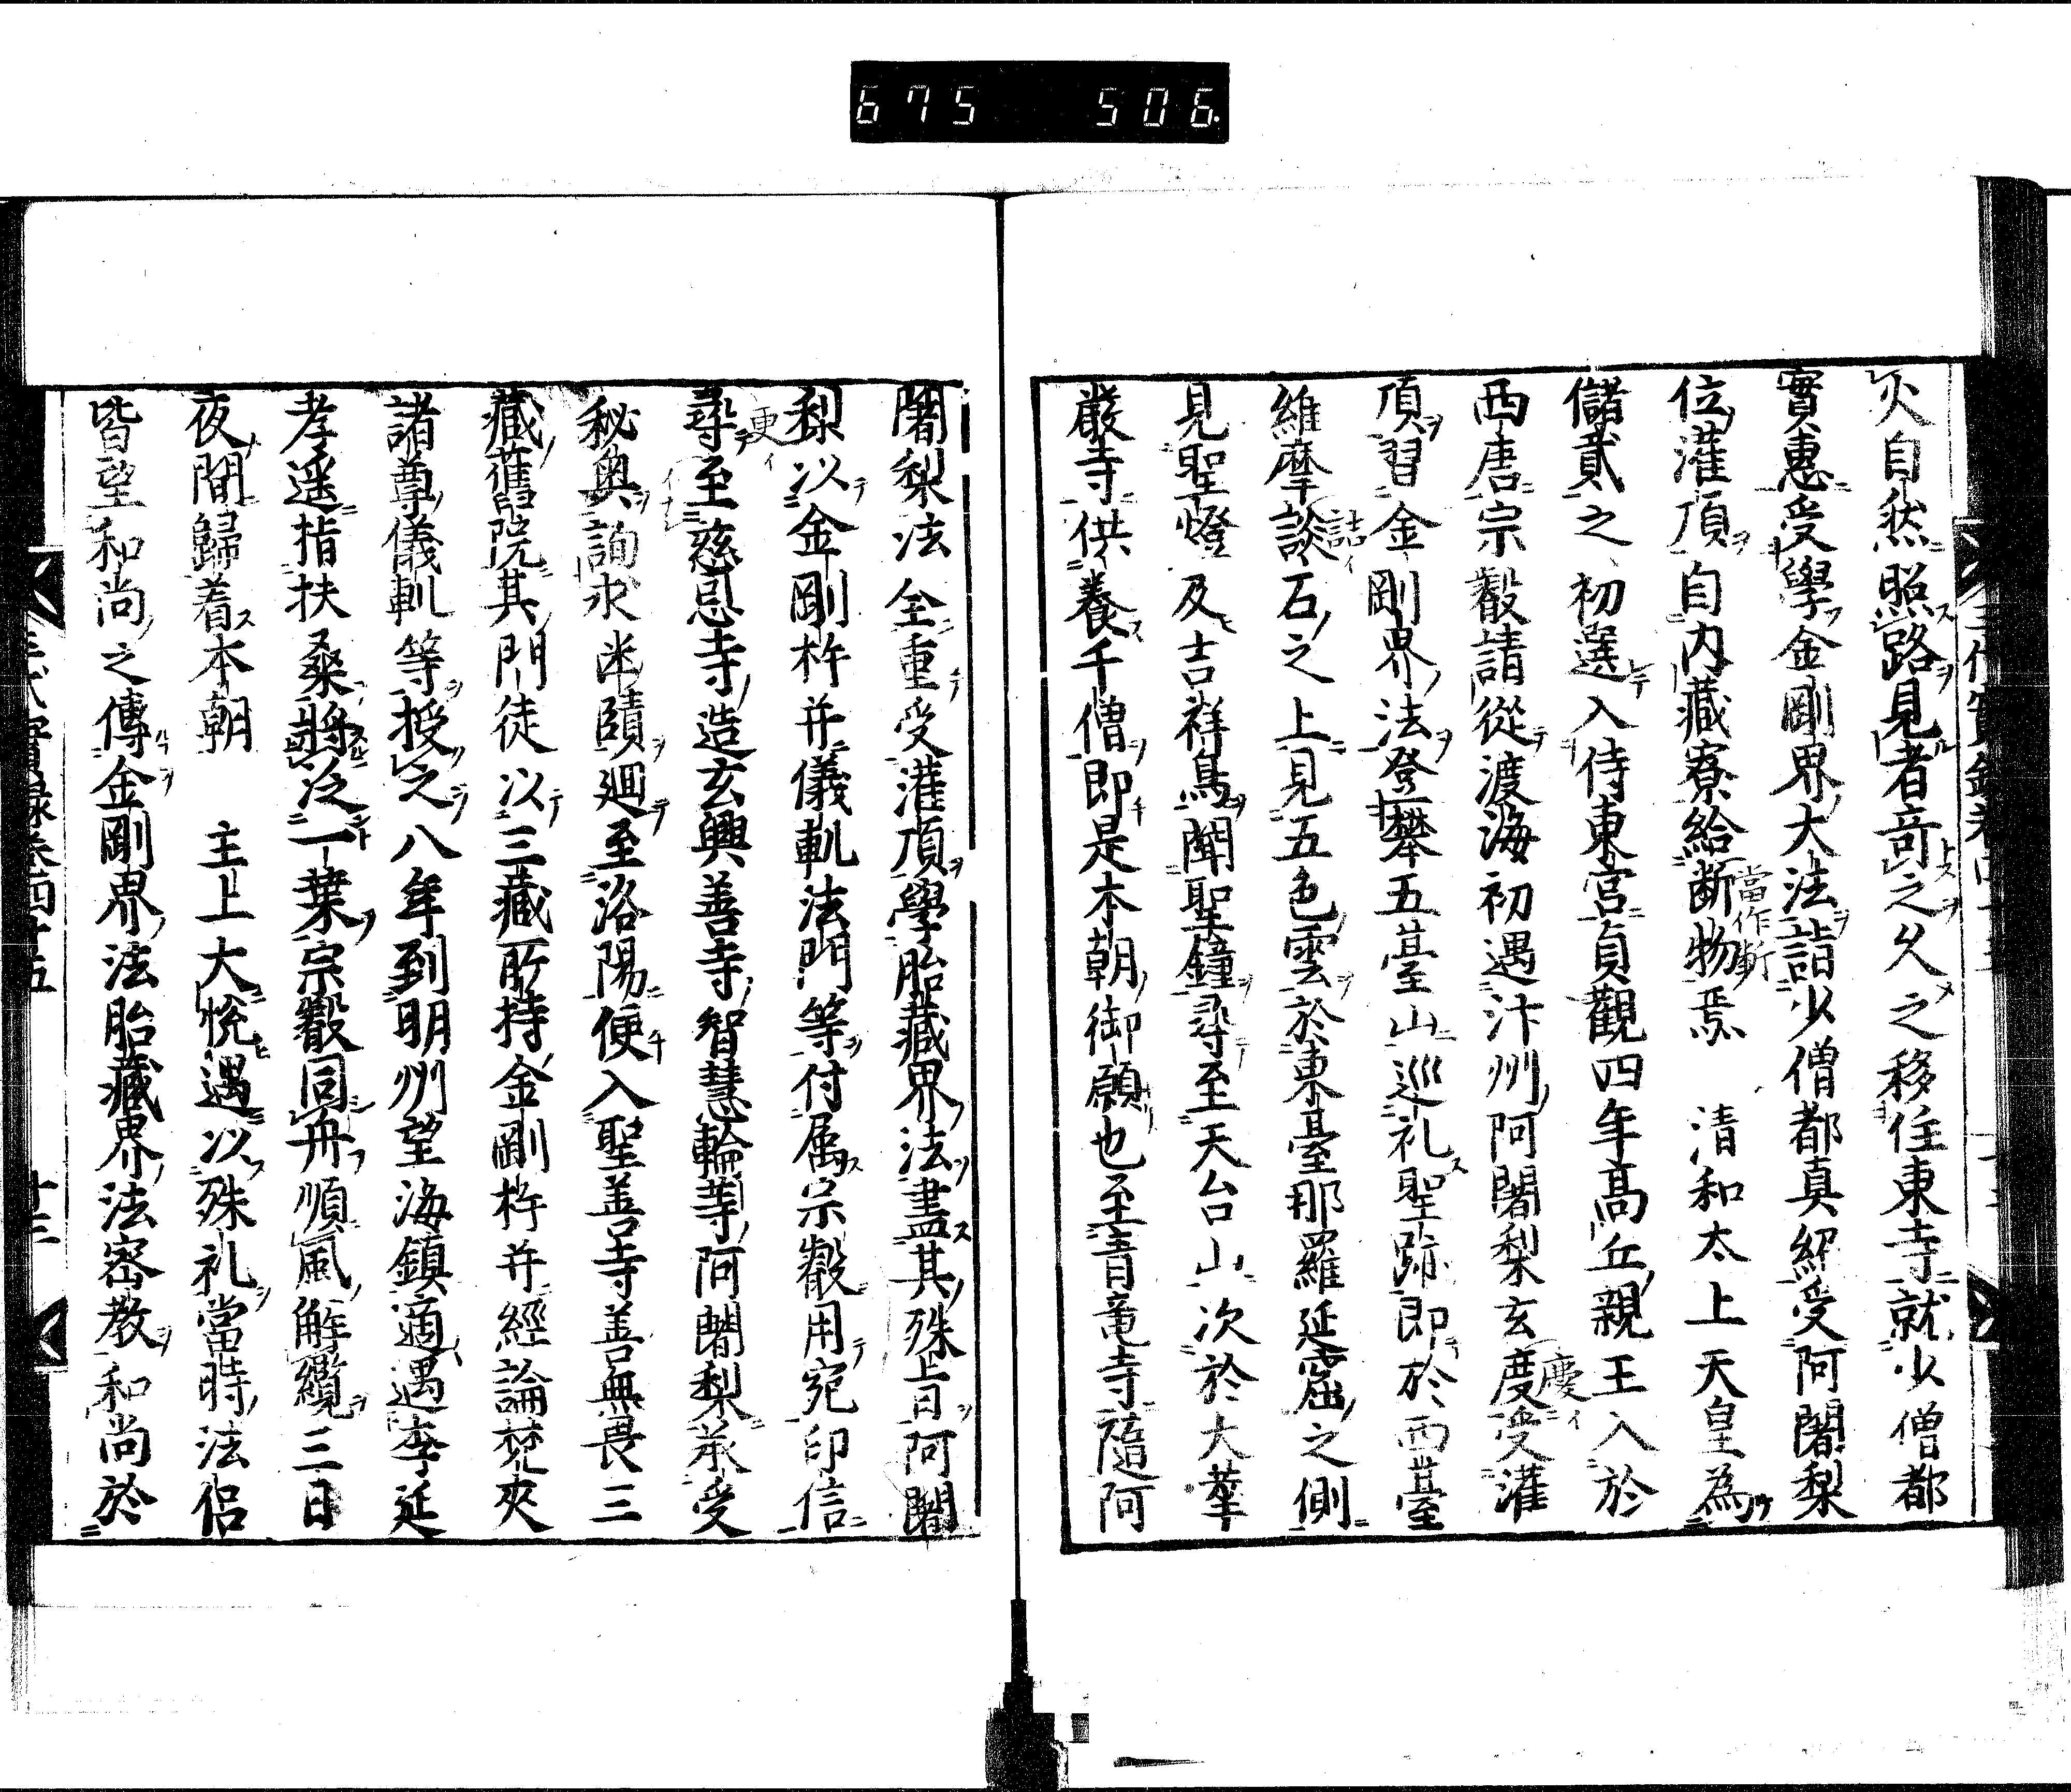 675 506.
火自然照路見者奇之久之移住東寺就少僧都
實惠受學金剛界大法詣少僧都真紹受阿闍梨
位灌頂自内藏寮給断物焉 清和太上天皇為
當作新
儲貳之初選入侍東宮貞觀四年高丘親王入於
西唐宗叡請從渡海初遇汴州阿闍梨玄度受灌
慶イ
頂習金剛界法登攀五臺山巡礼聖跡即於西臺
維摩談石之上見五色雲於東臺那羅延窟之側
詰イ
見聖燈及吉祥鳥聞聖鐘尋至天台山次於大華
嚴寺供養千僧即是本朝御願也至青竜寺隨阿
闍梨法全重受灌頂學胎藏界法盡其殊旨阿闍
梨以金剛杵并儀軌法門等付属宗叡用宛印信
更イ
尋至慈恩寺造玄興善寺智慧輪等阿闍梨承受
秘奥詢求幽賾廻至洛陽便入聖善寺善無畏三
藏舊院其門徒以三藏所持金剛杵并經論梵夾
諸尊儀軌等授之八年到明州望海鎮適遇李延
孝遥指扶桑將泛一葉宗叡同舟順風解纜三日
夜間歸着本朝 主上大悅遇以殊礼當時法侶
皆望和尚之傳金剛界法胎藏界法密教和尚於
三代實録卷四十五 十三